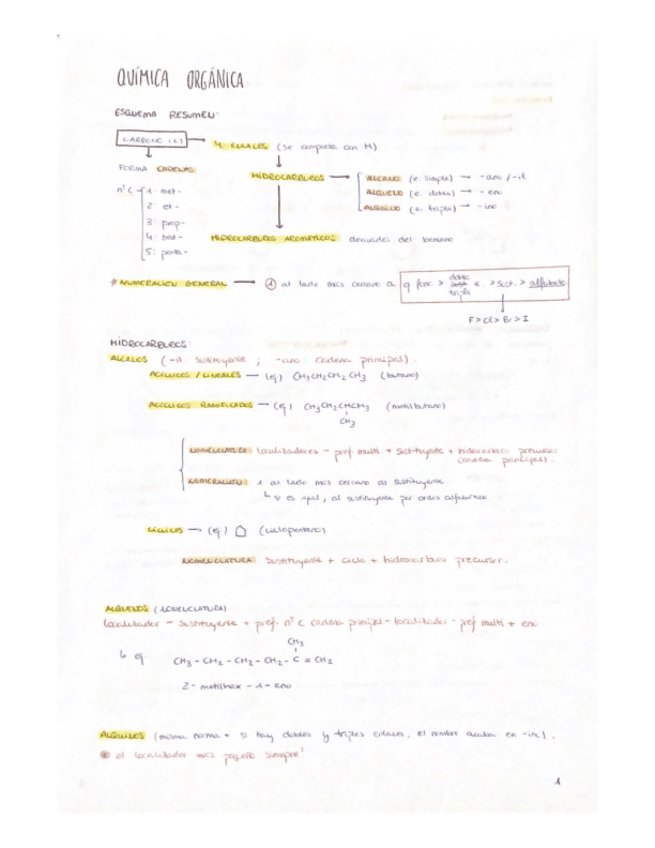 QUÍMICA ORGÁNICA
ESQUEMA RESUMEN:
CARBONO (C) → 4 ENLACES (se completa con H)
FORMA CADENAS
HIDROCARBUROS → ALCANO (e. simple) → -ano / -il
ALQUENO (e. doble) → -eno
ALQUINO (e. triple) → -ino
nº C 1: met-
2: et-
3: prop-
4: but-
5: penta-
HIDROCARBUROS AROMÁTICOS derivados del benceno
* NUMERACIÓN GENERAL → 1 al lado más cercano a g func. > doble triple e. > sust. > alfabeto
F > Cl > Br > I
HIDROCARBUROS:
ALCANOS (-il: sustituyente ; -ano: cadena principal).
ACÍCLICOS / LINEALES → (ej) CH3CH2CH2CH3 (butano)
ACÍCLICOS RAMIFICADOS → (ej) CH3CH2CHCH3 (metilbutano)
CH3
NOMENCLATURA: localizadores - pref. multi + sustituyente + hidrocarburo precursor
(cadena principal).
NUMERACIÓN: 1 al lado más cercano al sustituyente
↳ si es igual, al sustituyente por orden alfabético.
CÍCLICOS → (ej) (ciclopentano)
NOMENCLATURA: sustituyente + ciclo + hidrocarburo precursor.
ALQUENOS (NOMENCLATURA)
localizador - sustituyente + pref. nº C cadena principal - localizador - pref multi + eno
CH3
↳ ej: CH3 - CH2 - CH2 - CH2 - C = CH2
2 - metilhex - 1 - eno
ALQUINOS (misma norma + si hay dobles y triples enlaces, el nombre acaba en -ino).
el localizador más pequeño siempre!
1